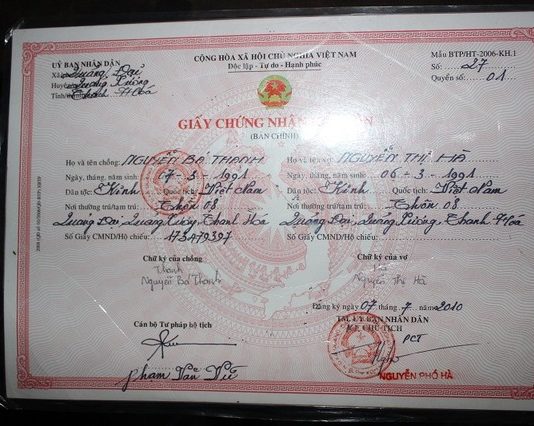 ỦY BAN NHÂN DÂN
Xã: Quảng Đại
Huyện: Quảng Xương
Tỉnh/ Thanh Hóa
CỘNG HÒA XÃ HỘI CHỦ NGHĨA VIỆT NAM
Độc lập - Tự do - Hạnh phúc
Mẫu BTP/HT-2006-KH.1
Số: 27
Quyển số: 01
GIẤY CHỨNG NHẬN
(BẢN CHÍNH)
Họ và tên chồng: NGUYỄN BÁ THANH
Ngày, tháng, năm sinh: 07-3-1991
Dân tộc: Kinh Quốc tịch: Việt Nam
Nơi thường trú/tạm trú: Thôn 08
Quảng Đại, Quảng Xương, Thanh Hóa
Số Giấy CMND/Hộ chiếu: 173479397
Họ và tên vợ: NGUYỄN THỊ HÀ
Ngày, tháng, năm sinh: 06-3-1991
Dân tộc: Kinh Quốc tịch: Việt Nam
Nơi thường trú/tạm trú: Thôn 08
Quảng Đại, Quảng Xương, Thanh Hóa
Số Giấy CMND/Hộ chiếu:
Chữ ký của chồng
Thanh
Nguyễn Bá Thanh
Chữ ký của vợ
Nguyễn Thị Hà
Đăng ký ngày 07 tháng 7 năm 2010
Cán bộ Tư pháp hộ tịch
Phạm Văn
TM. ỦY BAN NHÂN DÂN
KT. CHỦ TỊCH
PCT
NGUYỄN PHỐ HÀ